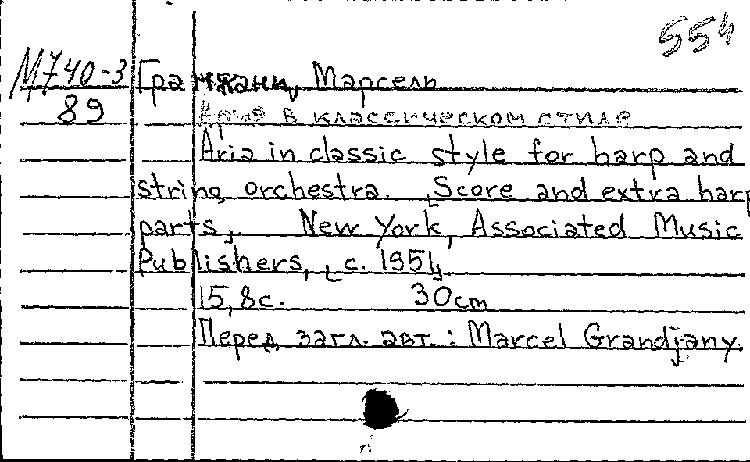 554
М740-3 Гранжани, Марсель
89 Ария в классическом стиле
Aria in classic style for harp and
string orchestra. Score and extra harp
parts, New York, Associated Music
Publishers, c. 1954.
15,8с. 30cm
Перед загл. авт.: Marcel Grandjany.